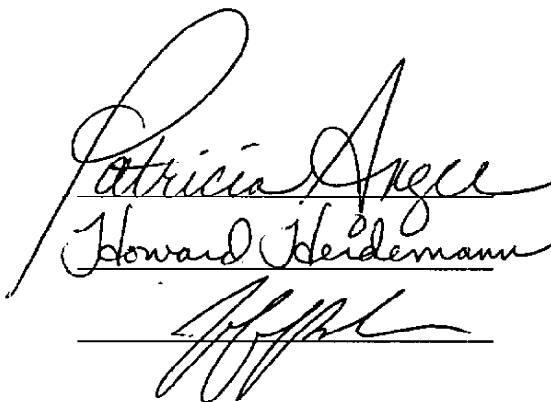 Patricia Angel
Howard Heidemann